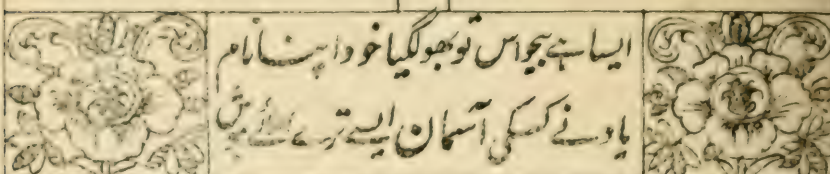 ایسا ہے بیحواس تو بھولگیا خود اپنا نام
یاد نے کسکی آسمان ایسے ترے